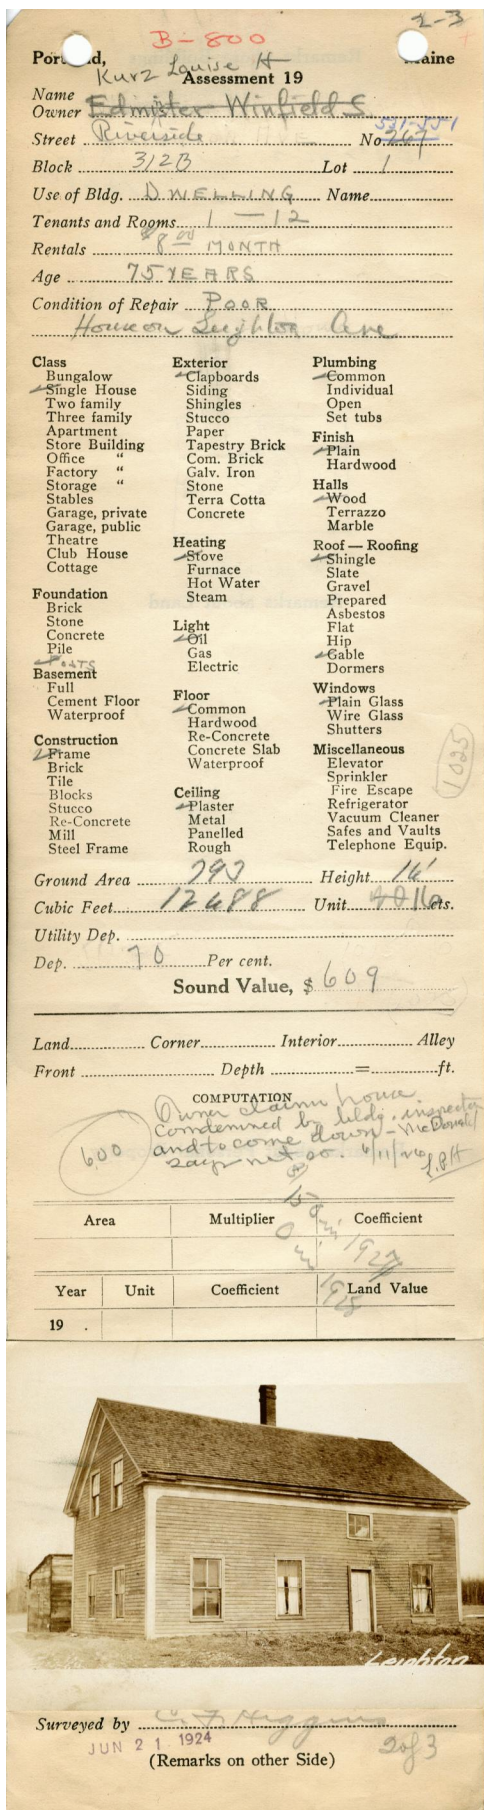 2-3
B-800
Portland, Maine
Kurz Louise H
Assessment 19
Name
Owner Edmister Winfield S.
531-551
Street Riverside No. 267
Block 312B Lot 1
Use of Bldg. DWELLING Name
Tenants and Rooms 1 - 12
Rentals $8.00 MONTH
Age 75 YEARS
Condition of Repair POOR
House on Leighton Ave
Class
Bungalow
Single House
Two family
Three family
Apartment
Store Building
Office "
Factory "
Storage "
Stables
Garage, private
Garage, public
Theatre
Club House
Cottage
Foundation
Brick
Stone
Concrete
Pile
POSTS
Basement
Full
Cement Floor
Waterproof
Construction
Frame
Brick
Tile
Blocks
Stucco
Re-Concrete
Mill
Steel Frame
Exterior
Clapboards
Siding
Shingles
Stucco
Paper
Tapestry Brick
Com. Brick
Galv. Iron
Stone
Terra Cotta
Concrete
Heating
Stove
Furnace
Hot Water
Steam
Light
Oil
Gas
Electric
Floor
Common
Hardwood
Re-Concrete
Concrete Slab
Waterproof
Ceiling
Plaster
Metal
Panelled
Rough
Plumbing
Common
Individual
Open
Set tubs
Finish
Plain
Hardwood
Halls
Wood
Terrazzo
Marble
Roof — Roofing
Shingle
Slate
Gravel
Prepared
Asbestos
Flat
Hip
Gable
Dormers
Windows
Plain Glass
Wire Glass
Shutters
Miscellaneous
Elevator
Sprinkler
Fire Escape
Refrigerator
Vacuum Cleaner
Safes and Vaults
Telephone Equip.
1025
Ground Area 793 Height 16'
Cubic Feet 12688 Unit 16 cts.
Utility Dep.
Dep. 70 Per cent.
Sound Value, $ 609
Land Corner Interior Alley
Front Depth = ft.
COMPUTATION
Owner claims house
condemned by bldg. inspector
and to come down - McDonald
says not so. 6/11/26 L.B.H
600
150 in 1927
0 in 1928
Area Multiplier Coefficient
Year Unit Coefficient Land Value
19 .
Leighton
Surveyed by C. F. Higgins
JUN 21 1924
2 of 3
(Remarks on other Side)